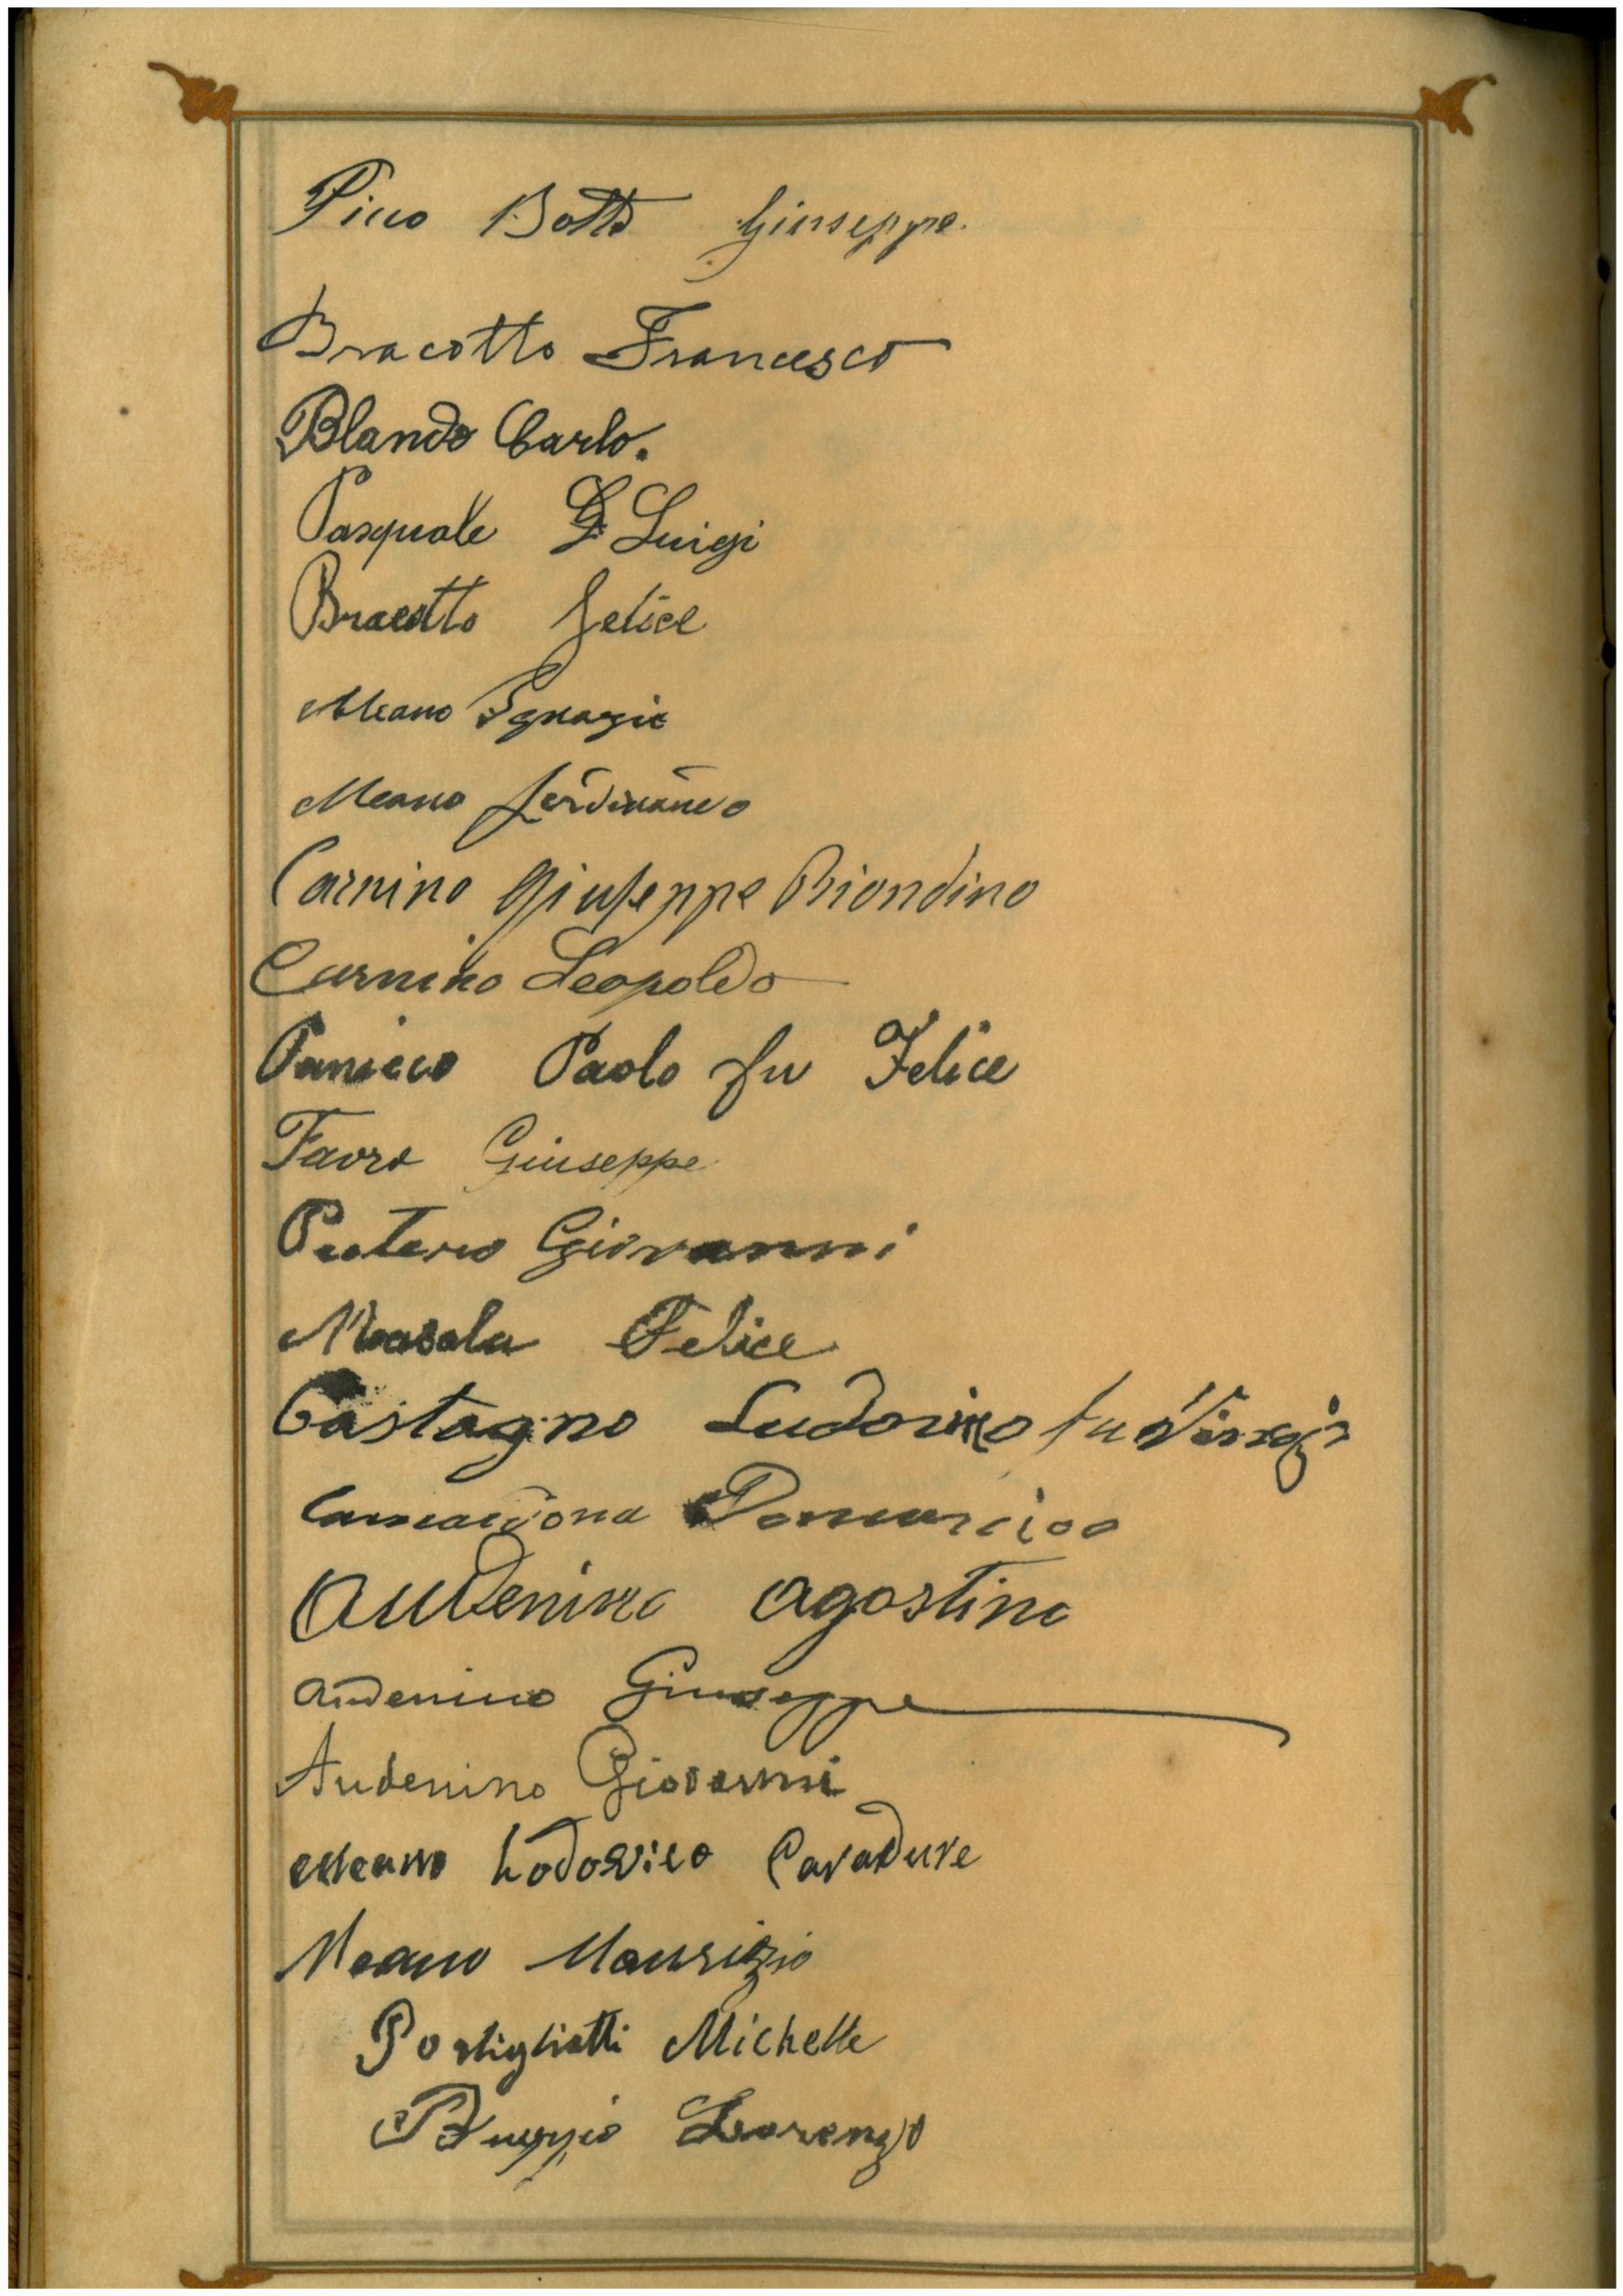 Picco Botto Giuseppe.
Bracotto Francesco
Blando Carlo.
Pasquale Luigi
Bracotto felice
Meano Ignazio
Meano ferdinando
Carnino Giuseppe Biondino
Carnino Leopoldo
Panicco Paolo fu Felice
Favro Giuseppe
Giovanni
Felice
Castagno Ludovico fu
Audenino Agostino
Audenino Giuseppe
Audenino Giovanni
Meano Lodovico
Meano Maurizio
Portigliatti Michelle
Lorenzo